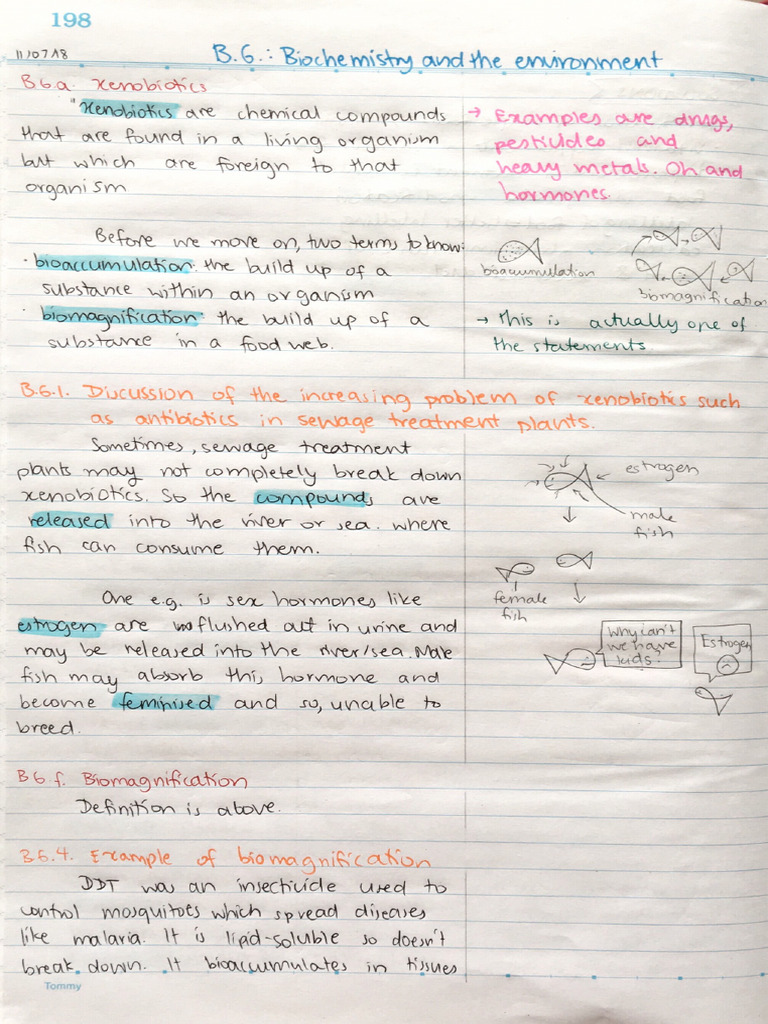 198
11/07/18
B.6.: Biochemistry and the environment
B6.a. Xenobiotics
"Xenobiotics are chemical compounds
that are found in a living organism
but which are foreign to that
organism
→ Examples are drugs,
pesticides and
heavy metals. Oh and
hormones.
Before we move on, two terms to know:
· bioaccumulation: the build up of a
substance within an organism
· biomagnification: the build up of a
substance in a food web.
bioaccumulation
biomagnification
→ This is actually one of
the statements.
B.6.1. Discussion of the increasing problem of xenobiotics such
as antibiotics in sewage treatment plants.
Sometimes, sewage treatment
plants may not completely break down
xenobiotics. So the compounds are
released into the river or sea. where
fish can consume them.
← estrogen
male
fish
female
fish
One e.g. is sex hormones like
estrogen are flushed out in urine and
may be released into the river/sea. Male
fish may absorb this hormone and
become feminised and so, unable to
breed.
Why can't
we have
kids?
Estrogen
B6 f. Biomagnification
Definition is above.
B6.4. Example of biomagnification
DDT was an insecticide used to
control mosquitoes which spread diseases
like malaria. It is lipid-soluble so doesn't
break down. It bioaccumulates in tissues
Tommy